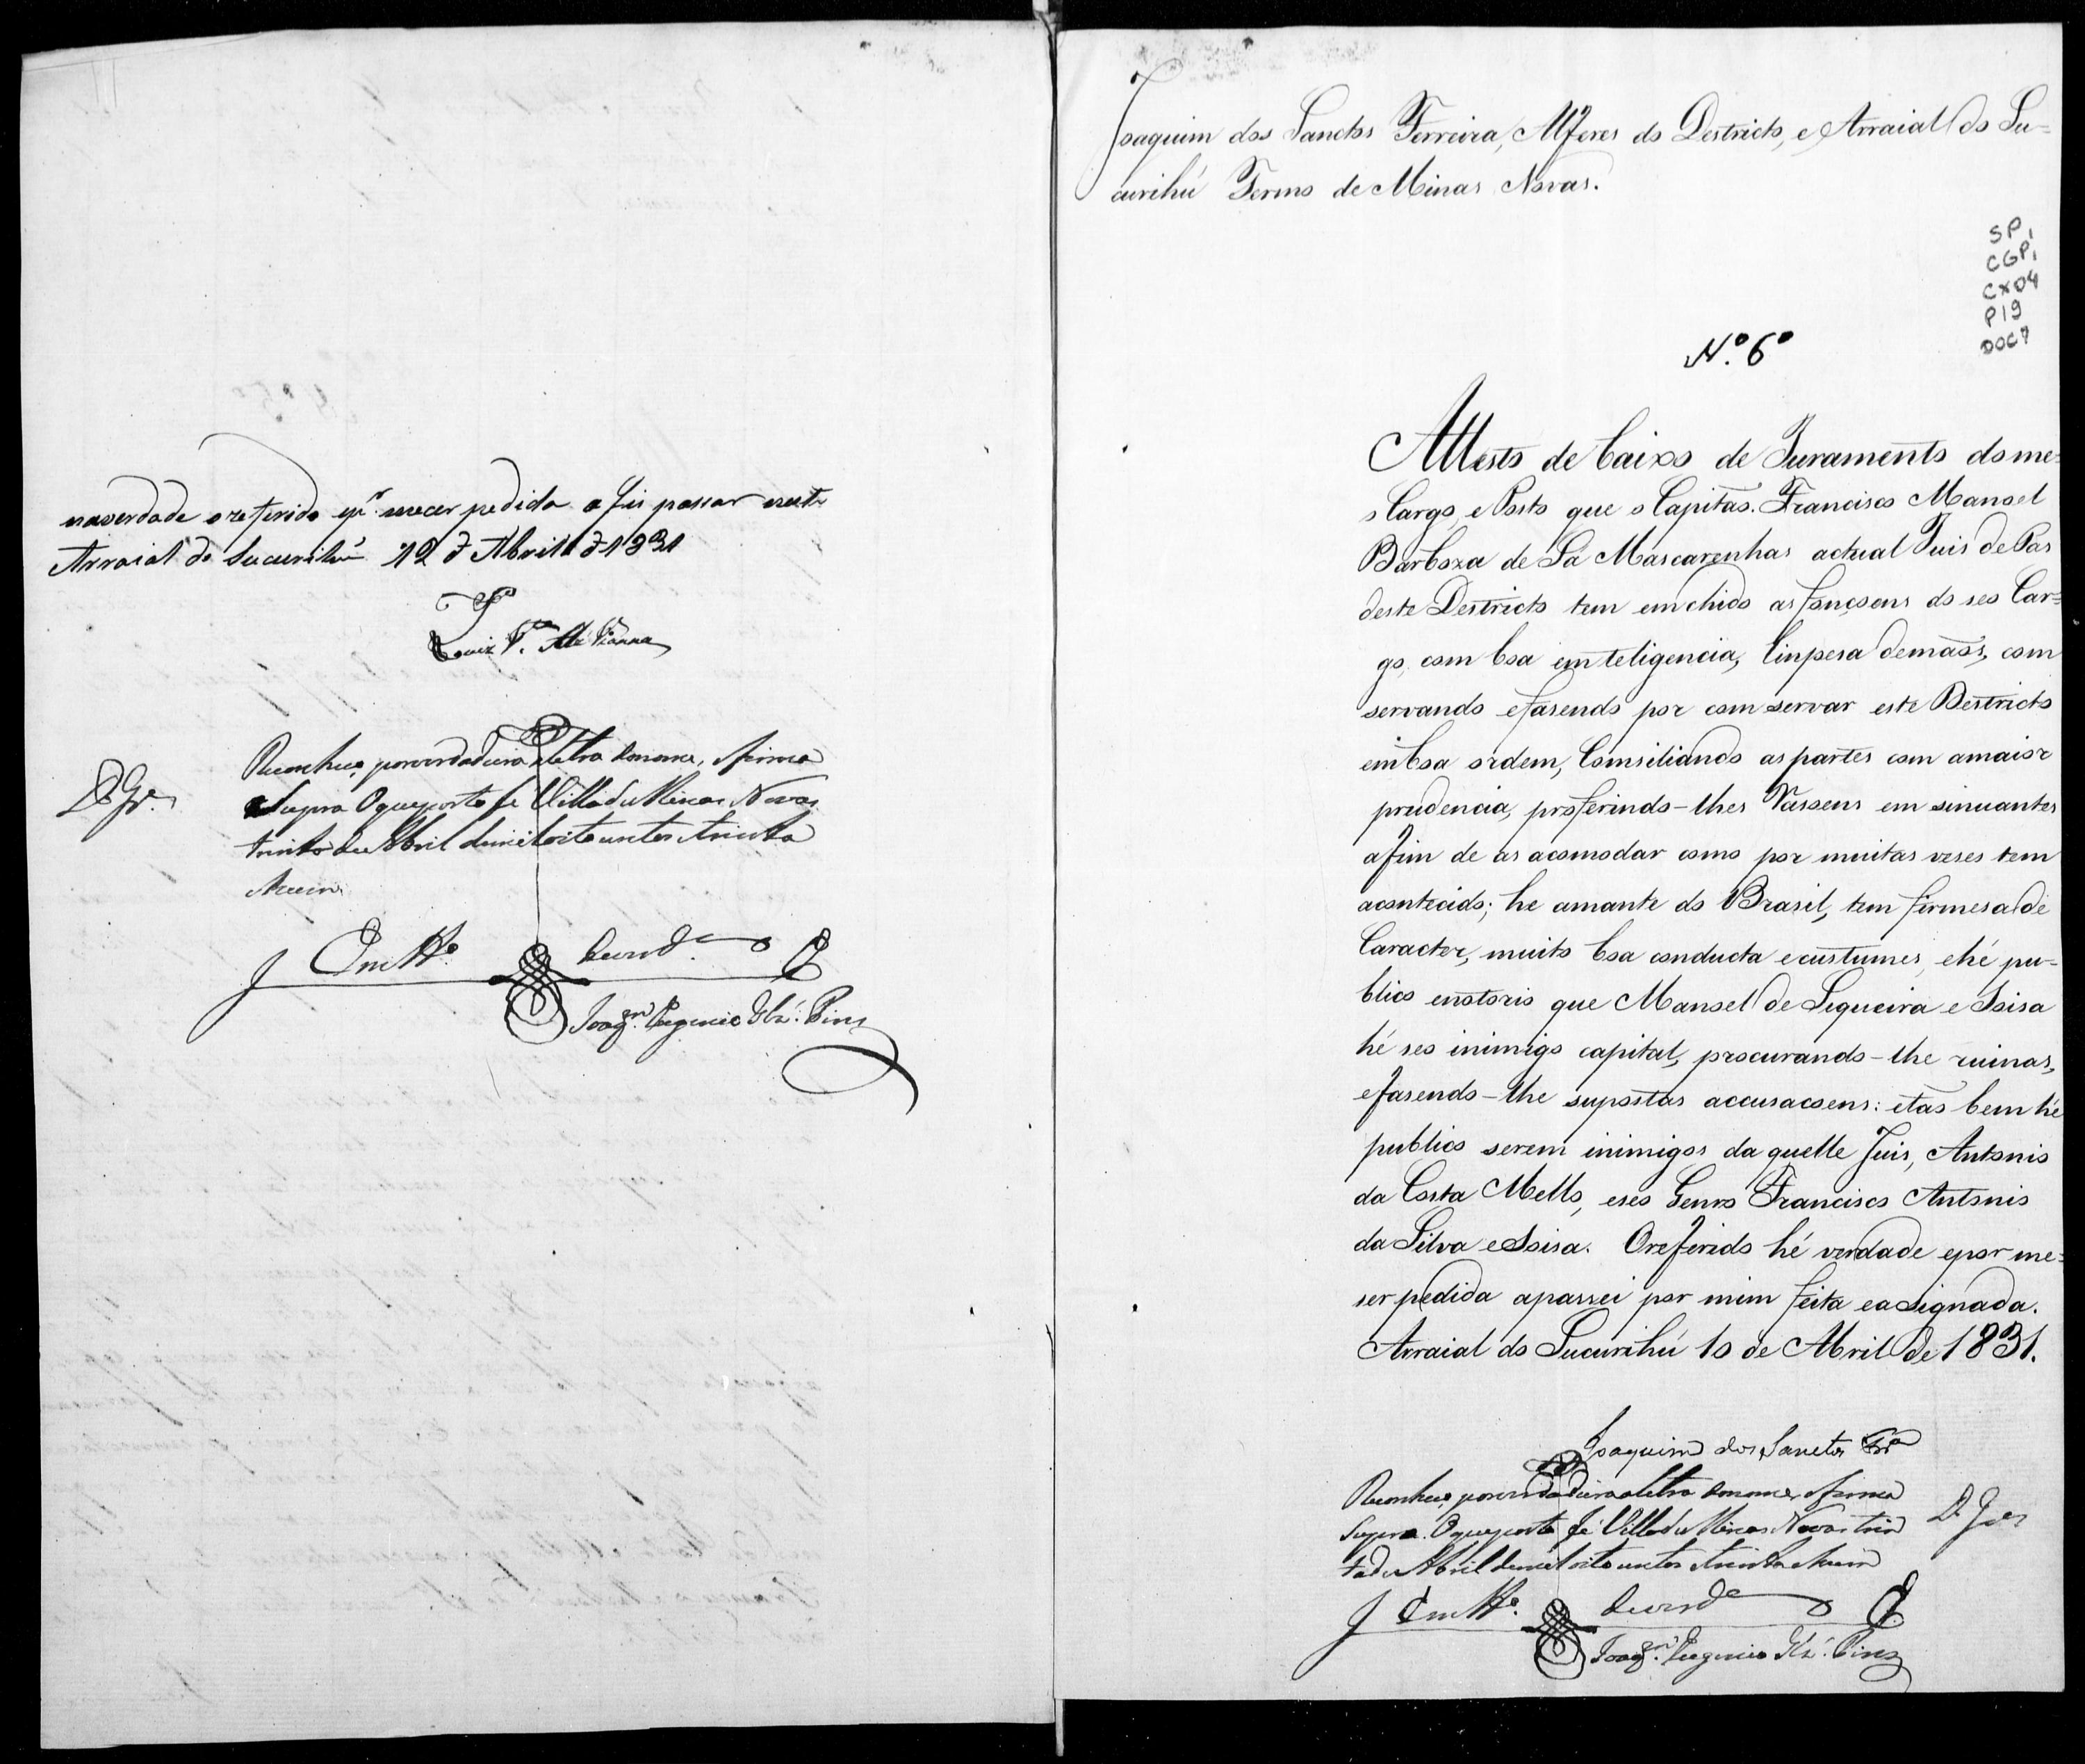 naverdade o referido e p.r mecer pedida a fis passar neste
Arraial do Sucurihú 12 d Abril d 1831
Luiz
Reconheço por verdadeira a letra do nome, e firma
Supra O que porto fé Villa de Minas Novas
trinta de Abril de mil oito centos trinta
e hum
Em tt.o de verd.e
Joaq.m Eugenio Glz.' Pires
Joaquim dos Sanctos Ferreira, Alferes do Destricto, e Arraial do Su=
curihú Termo de Minas Novas.
SP1
CGP1
CX04
P19
DOC7
N.o 6o
Attesto de baixo de Juramento do me=
o Cargo, e Posto que o Capitão. Francisco Manoel
Barboza de Sá Mascarenhas actual Juis de Pas
deste Destricto tem emchido as fonçoens do seo Car=
go, com boa emteligencia, linpesa demaõs, com
servando efasendo por com servar este Destricto
emboa ordem, Comsiliando as partes com amaior
prudencia, proferindo-lhes Rassens em sinuantes
afim de as acomodar como por muitas veses tem
acontecido; he amante do Brasil, tem firmesa de
Caracter, muito boa conducta ecustumes, ehé pu-
blico enotorio que Manoel de Siqueira e Soisa
hé seo inimigo capital, procurando-lhe ruinas,
efasendo-lhe supostas accusacoens: etaõ bem hé
publico serem inimigos da quelle Juis, Antonio
da Costa Mello, eseo Genro Francisco Antonio
da Silva eSoisa. Oreferido hé verdade epor me=
ser pedida apassei por mim feita eaSignada.
Arraial do Sucurihú 10 de Abril de 1831.
Joaquim dos Sanctos Frr.a
Reconheço por verdadeira a letra do nome, e firma
Supra. O que porto fé Villa de Minas Novas trin
ta de Abril de mil oito centos e trinta e hum
Em tt.o de verd.e
Joaq.m Eugenio Glz.' Pires